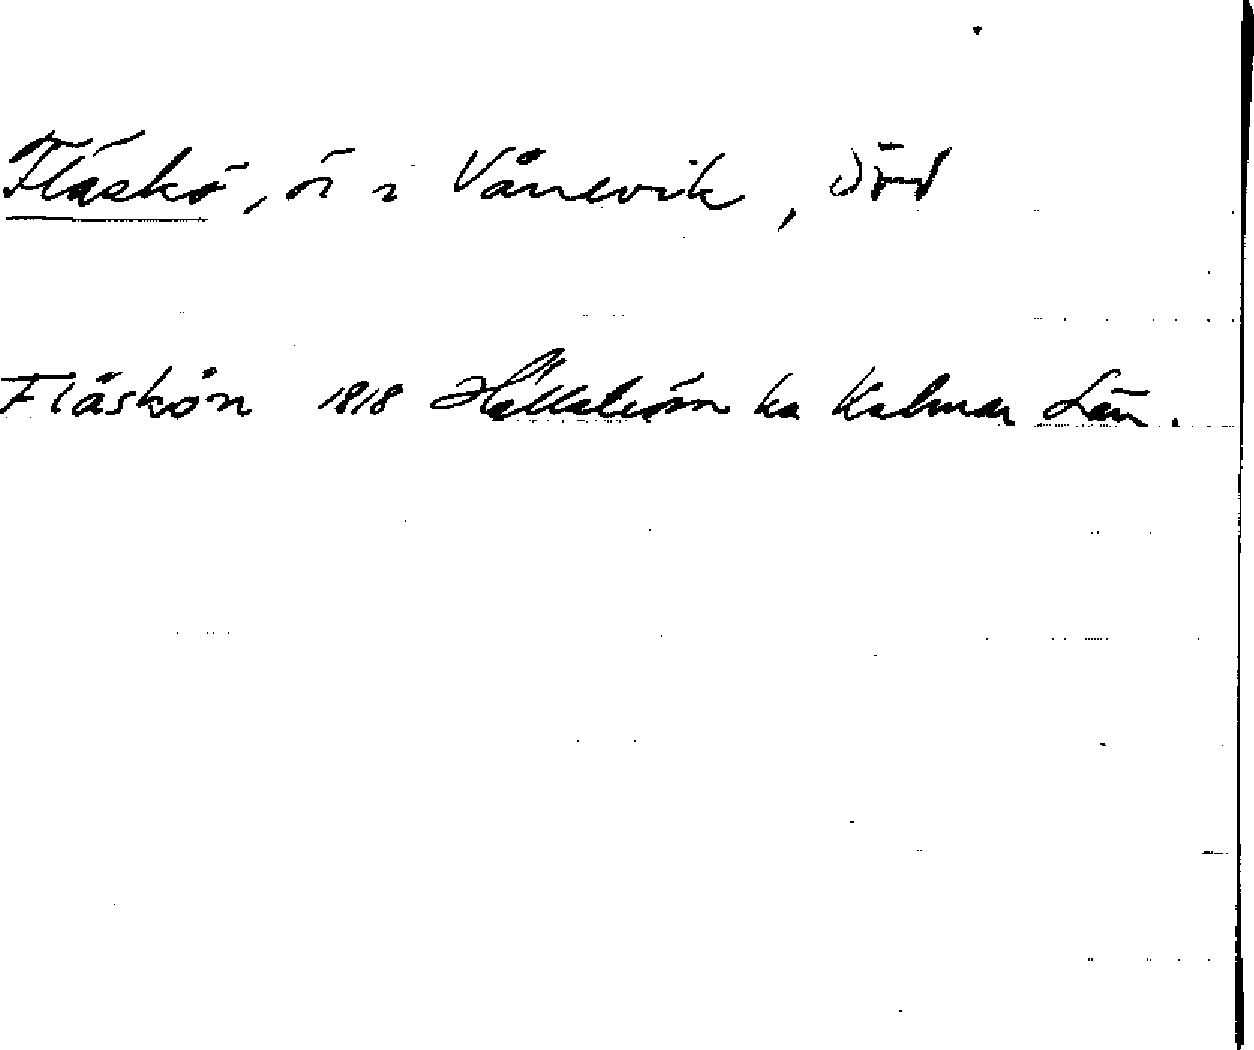 Fläskö, ö i Vånevik, Död
Fläskön 1818 Hällström ka Kalmar Län.